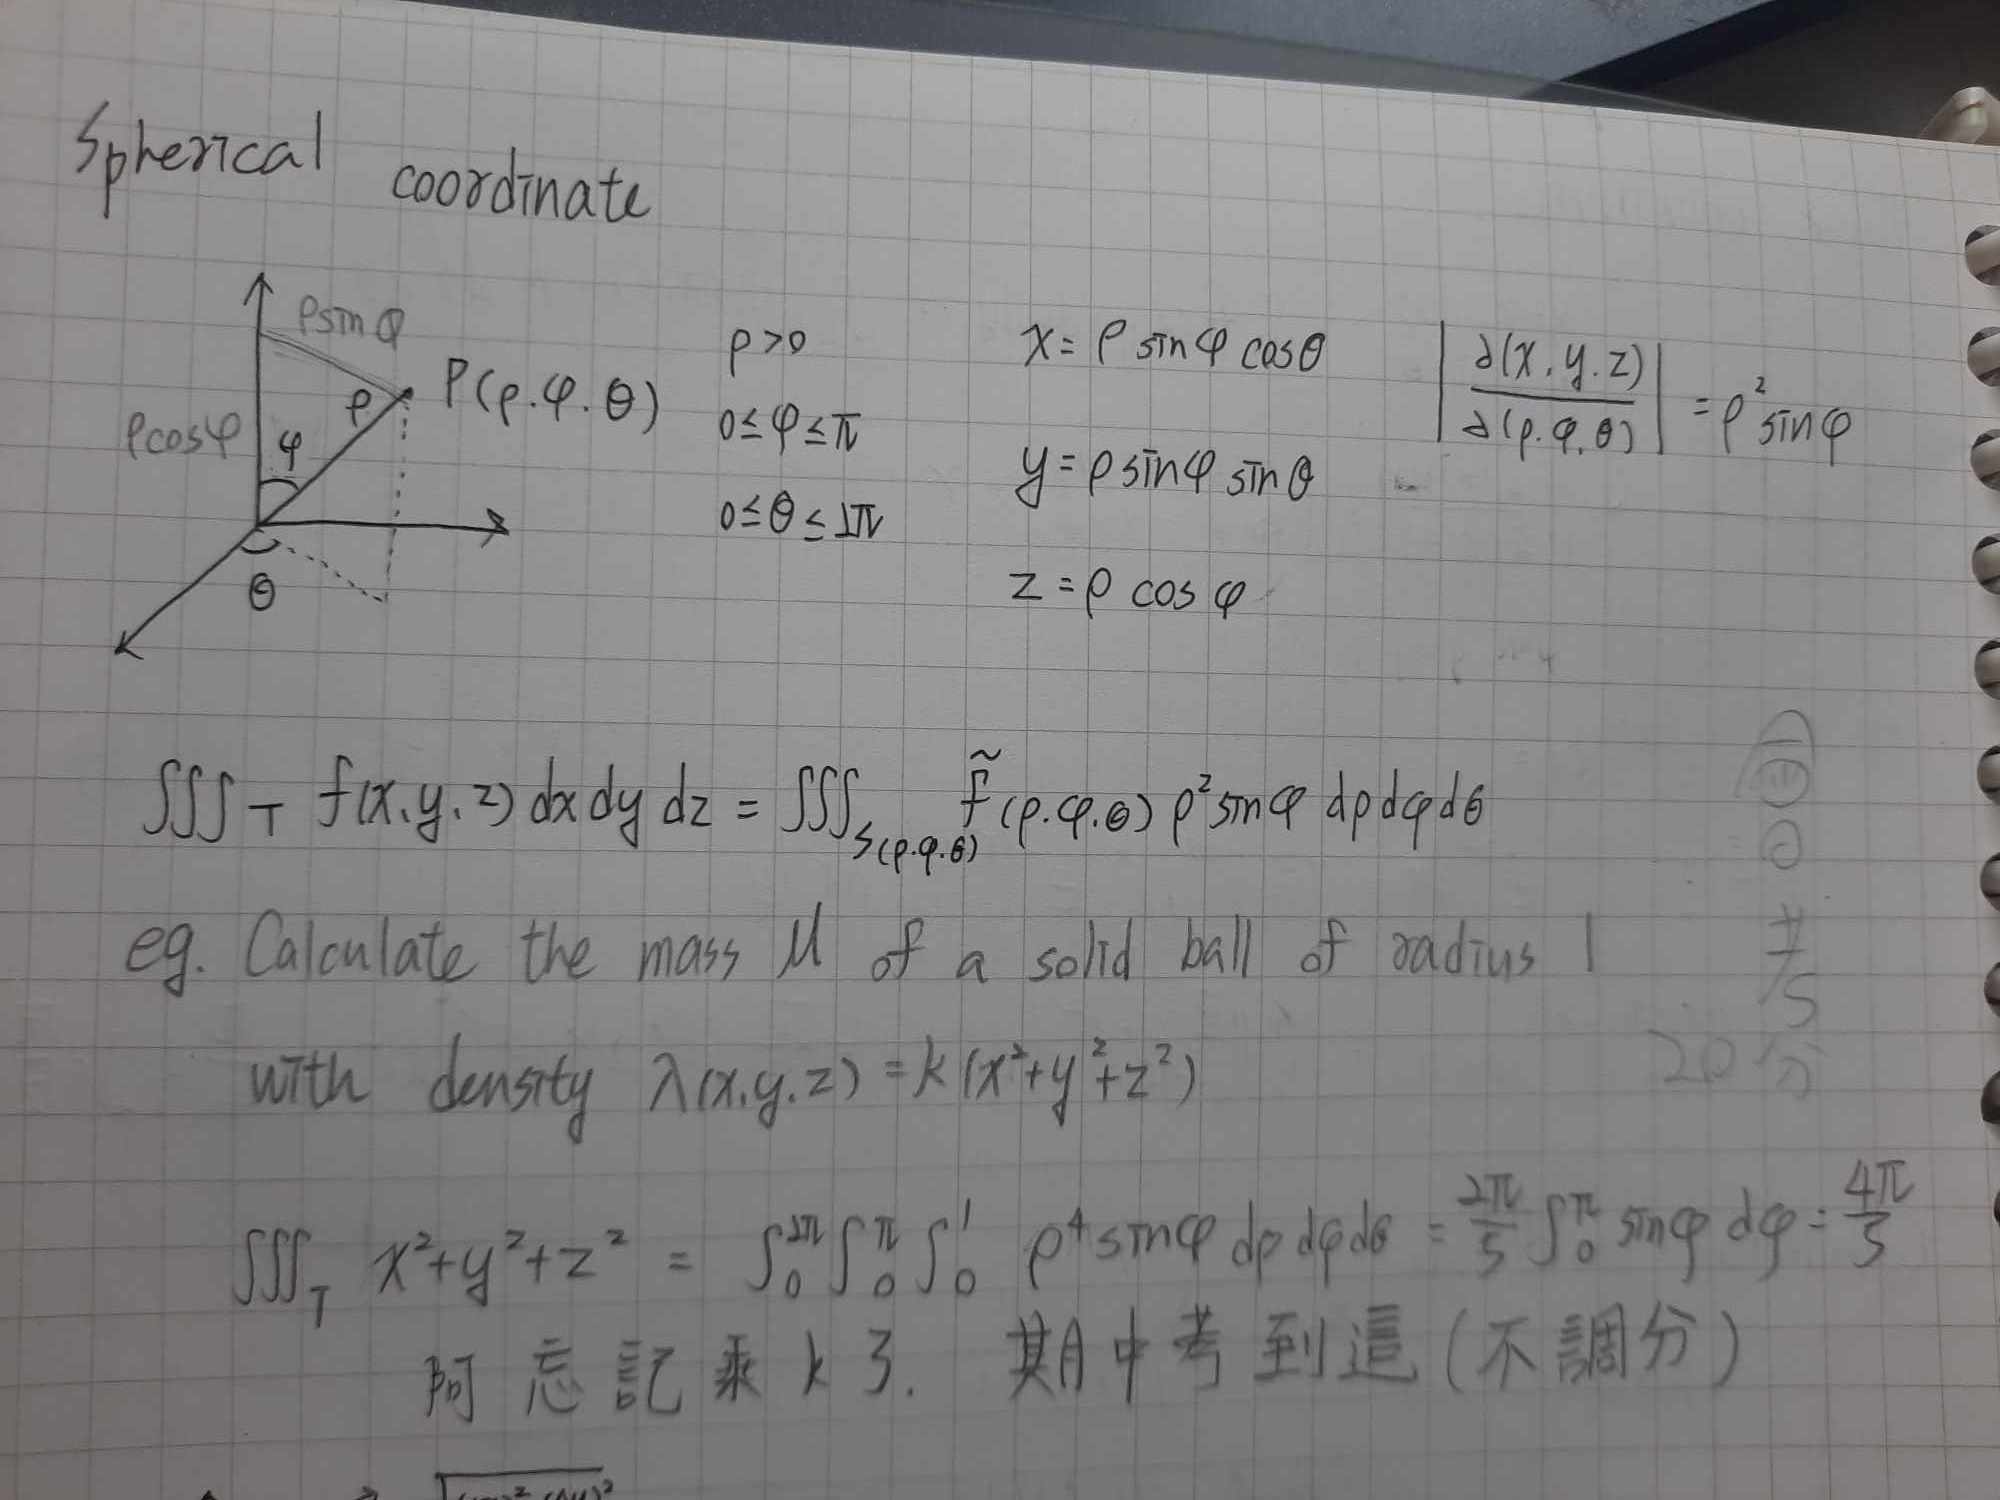 Spherical coordinate
ρsinφ
ρcosφ
φ
ρ
P(ρ.φ.θ)
θ
ρ>0
0≤φ≤π
0≤θ≤2π
x=ρ sinφ cosθ
y=ρsinφ sinθ
z=ρ cosφ
|∂(x.y.z)/∂(ρ.φ.θ)| = ρ² sinφ
∭_T f(x.y.z) dx dy dz = ∭_S(ρ.φ.θ) f̃(ρ.φ.θ) ρ² sinφ dρdφdθ
eg. Calculate the mass M of a solid ball of radius 1
with density λ(x.y.z) = k(x²+y²+z²)
∭_T x²+y²+z² = ∫₀^2π ∫₀^π ∫₀^1 ρ⁴ sinφ dρ dφ dθ = 2π/5 ∫₀^π sinφ dφ = 4π/5
阿忘記乘k了. 期中考到這(不調分)
20分